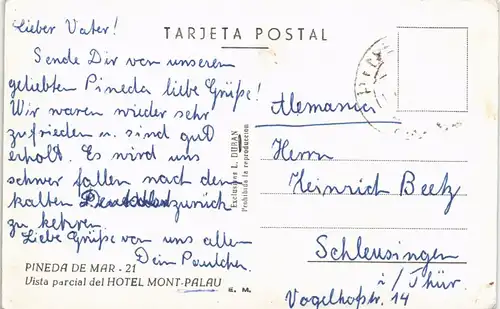 TARJETA POSTAL
Lieber Vater!
Sende Dir von unserem
geliebten Pineda liebe Grüße!
Wir waren wieder sehr
zufrieden u. sind gut
erholt. Es wird uns
schwer fallen nach dem
kalten Deutschland zurück
zu kehren.
Liebe Grüße von uns allen
Dein Paulchen.
PINEDA DE MAR - 21
Vista parcial del HOTEL MONT-PALAU
E. M.
Exclusivas L. DURAN
Prohibida la reproducción
Alemania
Herrn
Heinrich Beetz
Schleusingen
i/Thür.
Vogelhofstr. 14